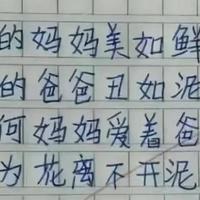 的妈妈美如鲜
的爸爸丑如泥
何妈妈爱着爸
为花离不开泥